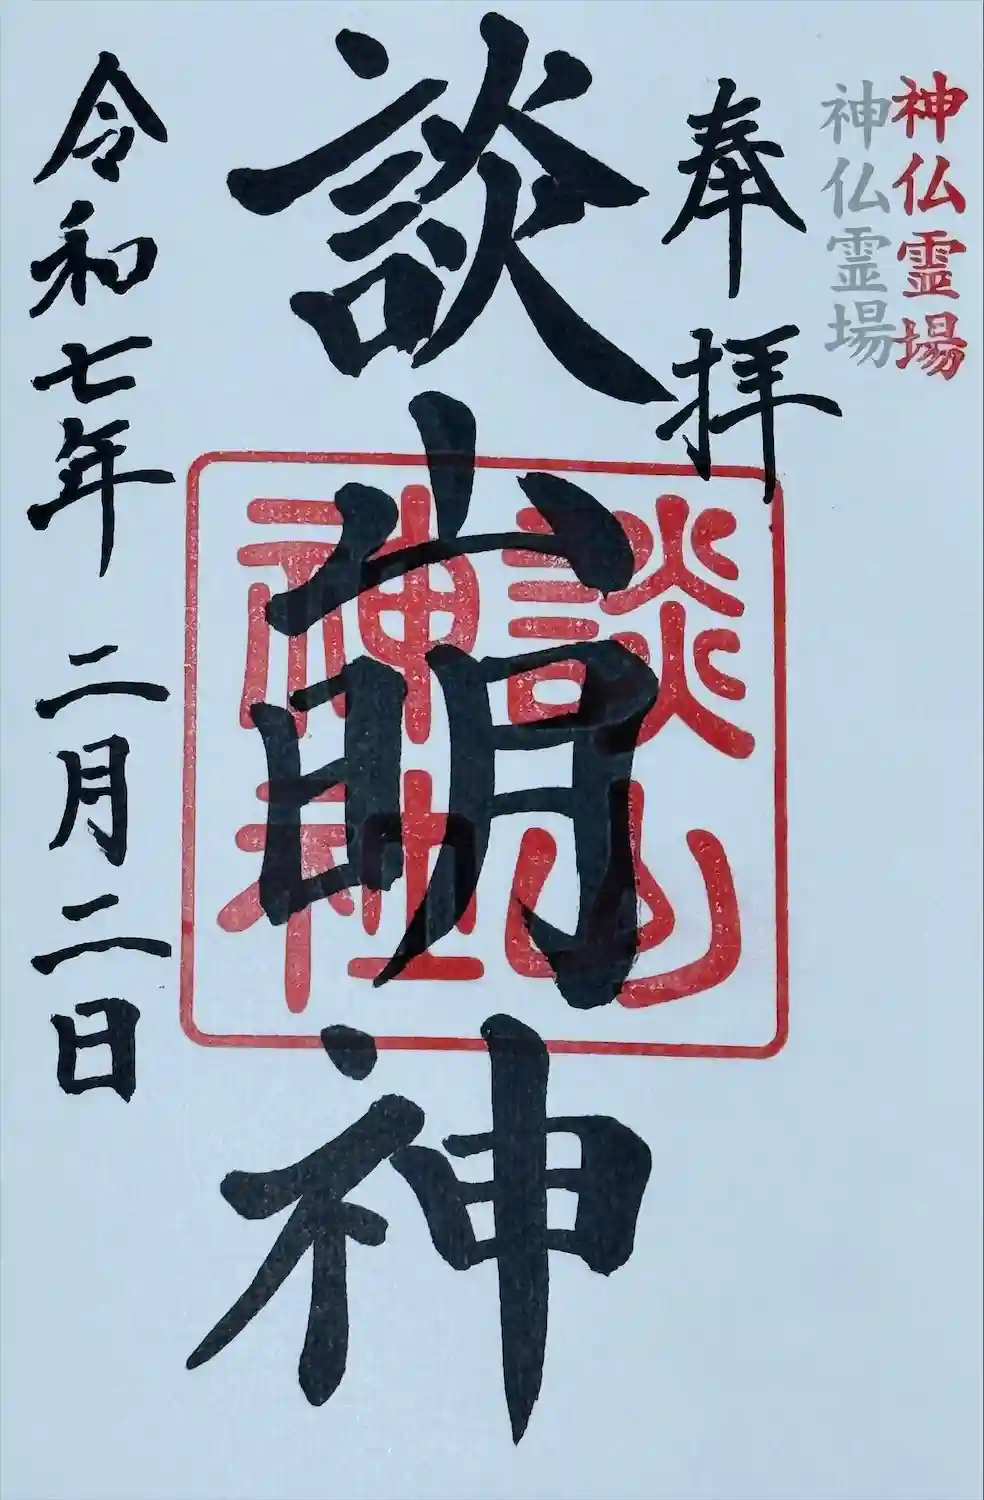 神仏霊場
神仏霊場
奉拝
談山明神
談山
神社
令和七年 二月二日